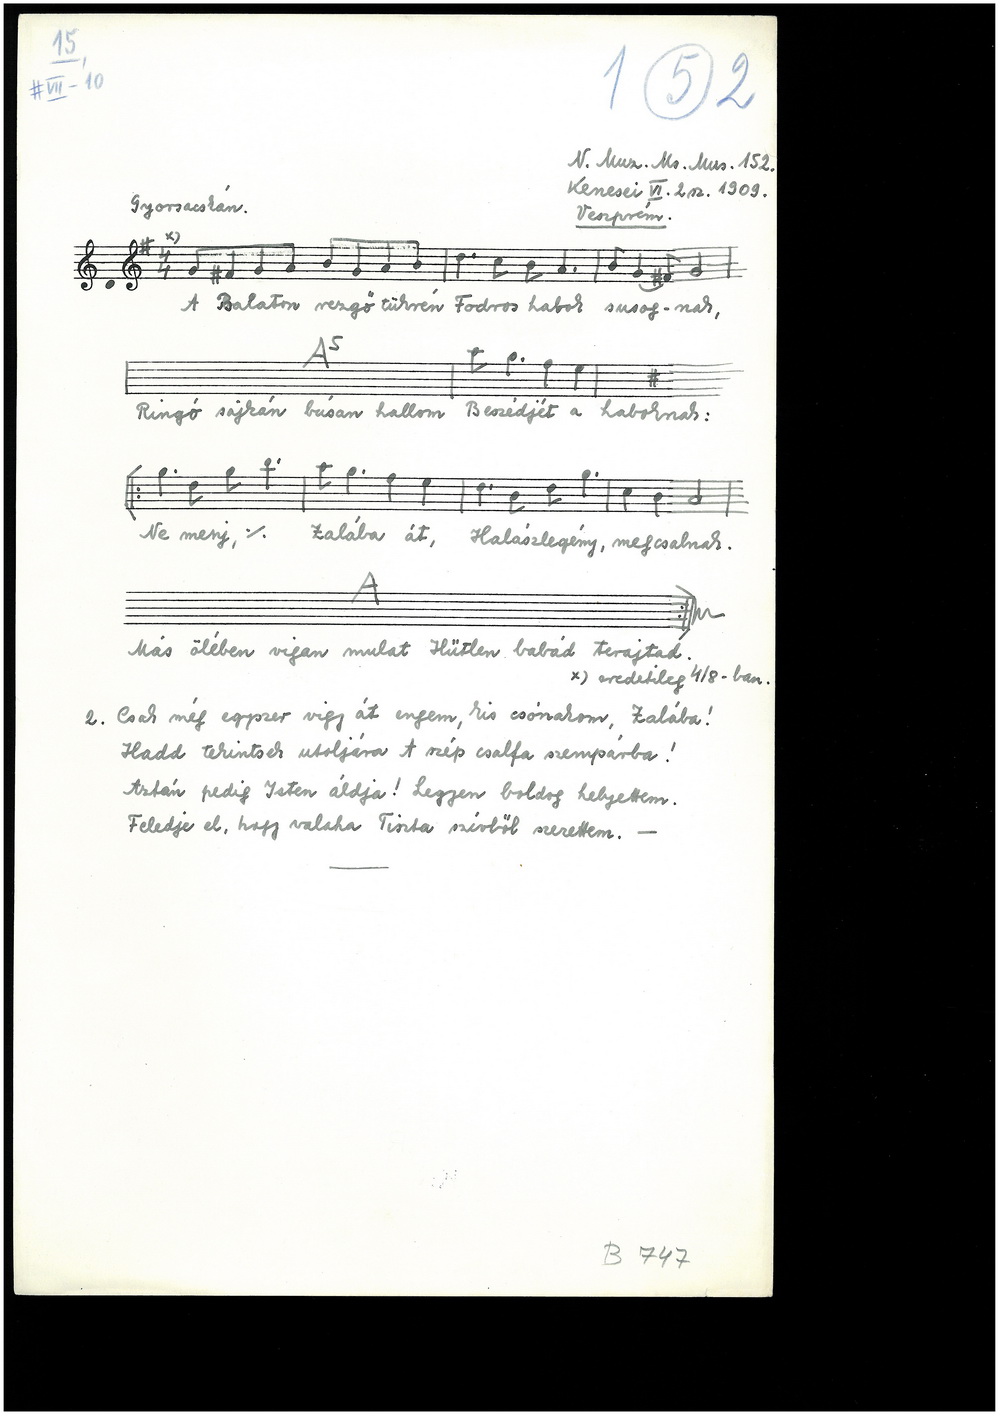 15,
# VII - 10
1 5 2
N. Muz. Ms. Mus. 152.
Kenesei VI. 2 sz. 1909.
Veszprém.
Gyorsacskán.
x)
4
4
A Balaton rezgő tükrén Fodros habok susog - nak,
A5
Ringó sajkán búsan hallom Beszédjét a haboknak:
Ne menj, :/. Zalába át, Halászlegény, megcsalnak.
A
Más ölében vigan mulat Hűtlen babád
x) eredetileg 4/8-ban.
2. Csak még egyszer vigy át engem, kis csónakom, Zalába!
Hadd tekintsek utoljára A szép csalfa szempárba!
Aztán pedig Isten áldja! Legyen boldog helyettem.
Feledje el, hogy valaha Tiszta szívből szerettem. —
B 747